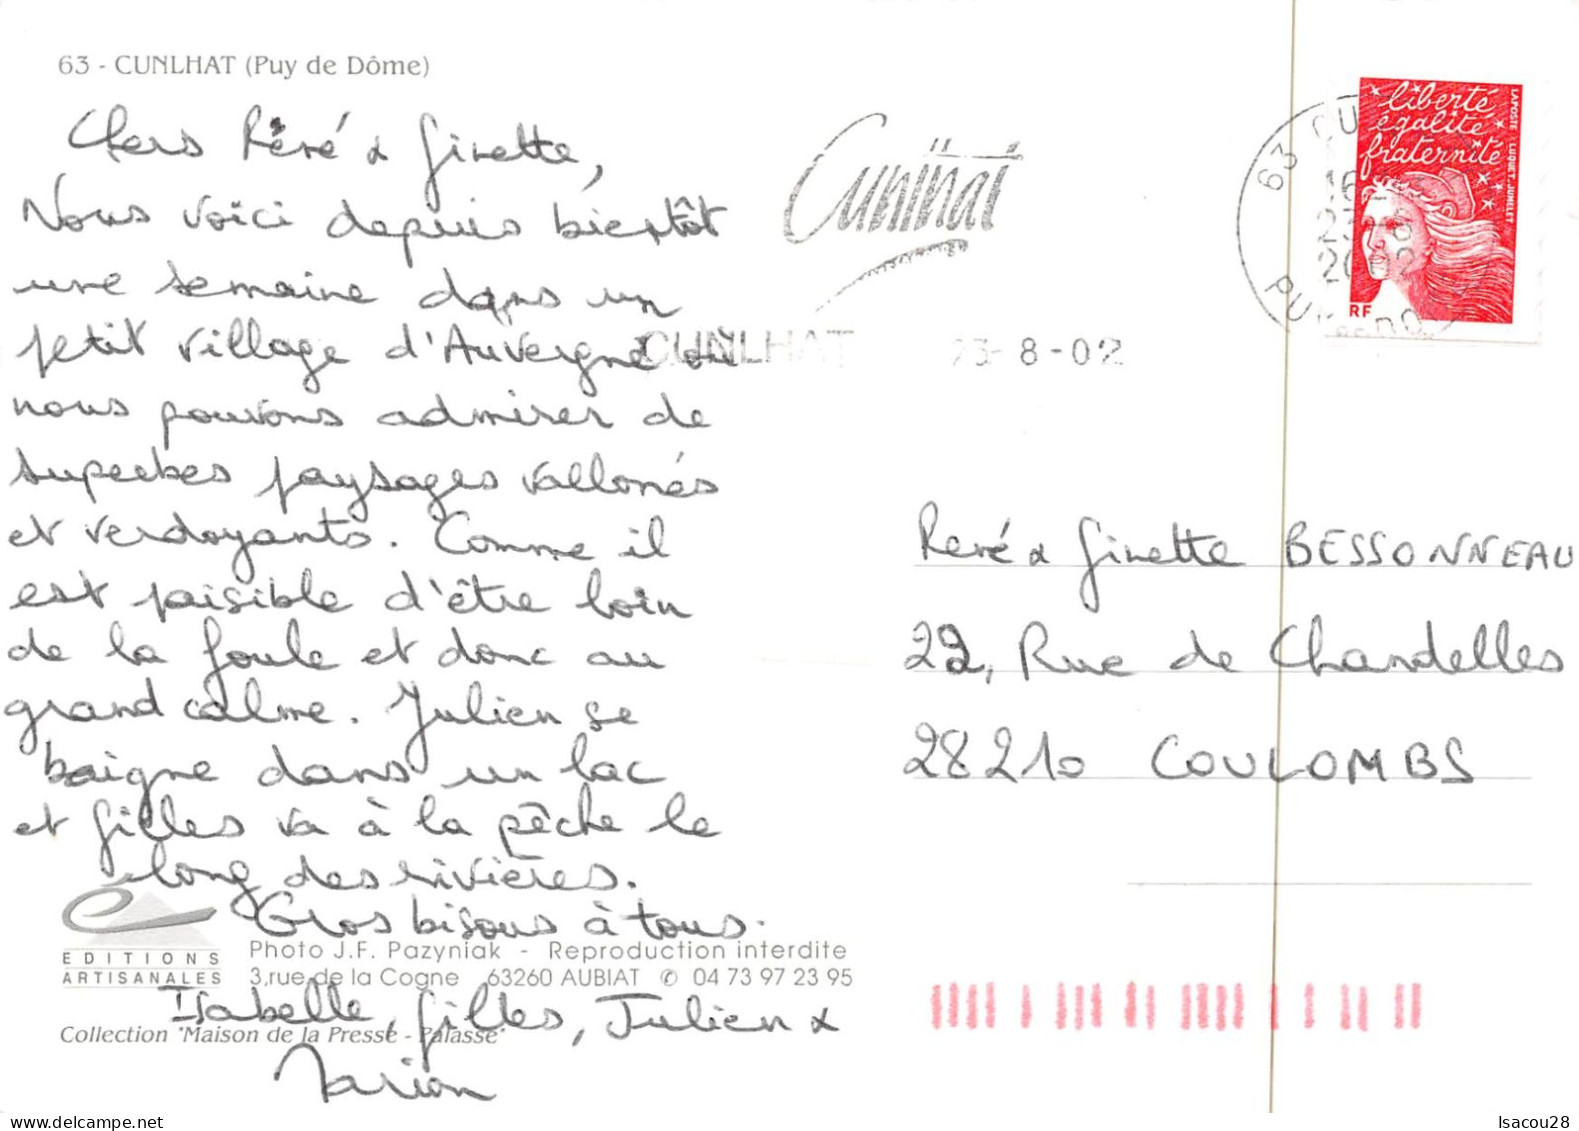 63 - CUNLHAT (Puy de Dôme)
Chers Réné & Ginette,
Nous voici depuis bientôt
une semaine dans un
petit village d'Auvergne où
nous pouvons admirer de
superbes paysages vallonés
et verdoyants. Comme il
est paisible d'être loin
de la foule et donc au
grand calme. Julien se
baigne dans un lac
et Gilles va à la pêche le
long des rivières.
Gros bisous à tous.
Isabelle, Gilles, Julien &
Marion
EDITIONS
ARTISANALES
Photo J.F. Pazyniak - Reproduction interdite
3,rue de la Cogne 63260 AUBIAT ✆ 04 73 97 23 95
Collection "Maison de la Presse - Palasse"
Cunlhat
CUNLHAT 23-8-02
63 CU
16
23-8
2002
PUY
liberté
égalité
fraternité
LAPOSTE LUQUET.JUMELET
RF
René & Ginette BESSONNEAU
22, Rue de Chandelles
28210 COULOMBS
Isacou28